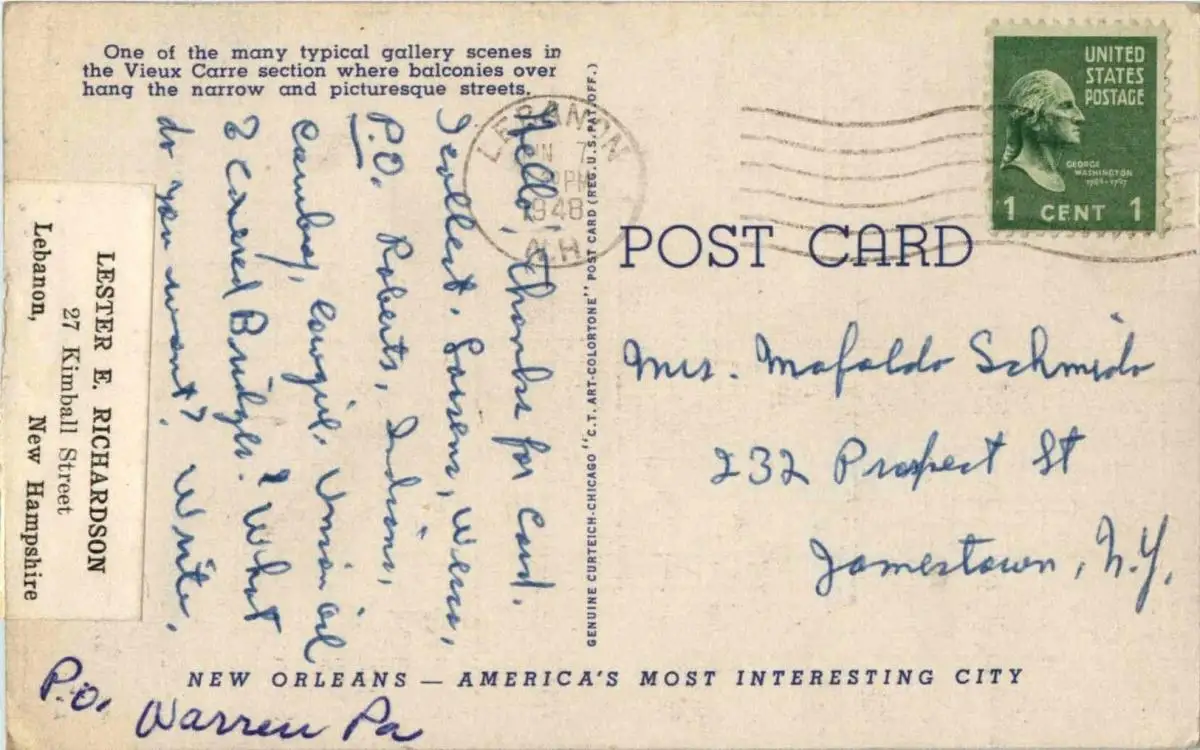 One of the many typical gallery scenes in
the Vieux Carre section where balconies over
hang the narrow and picturesque streets.
LEBANON
7
PM
1948
N.H.
UNITED
STATES
POSTAGE
GEORGE
WASHINGTON
1 CENT 1
POST CARD
Hello, Thanks for card.
I collect. Screens, Views,
P.O. Roberts, Indians,
Cowboy, Cowgirl. Union Oil
& Covered Bridges. What
do you want? Write.
LESTER E. RICHARDSON
27 Kimball Street
Lebanon, New Hampshire
GENUINE CURTEICH-CHICAGO "C.T. ART-COLORTONE" POST CARD (REG. U.S. PAT. OFF.)
Mrs. Mafalda Schmidt
232 Prospect St
Jamestown, N.Y.
NEW ORLEANS — AMERICA'S MOST INTERESTING CITY
P.O.
Warren Pa